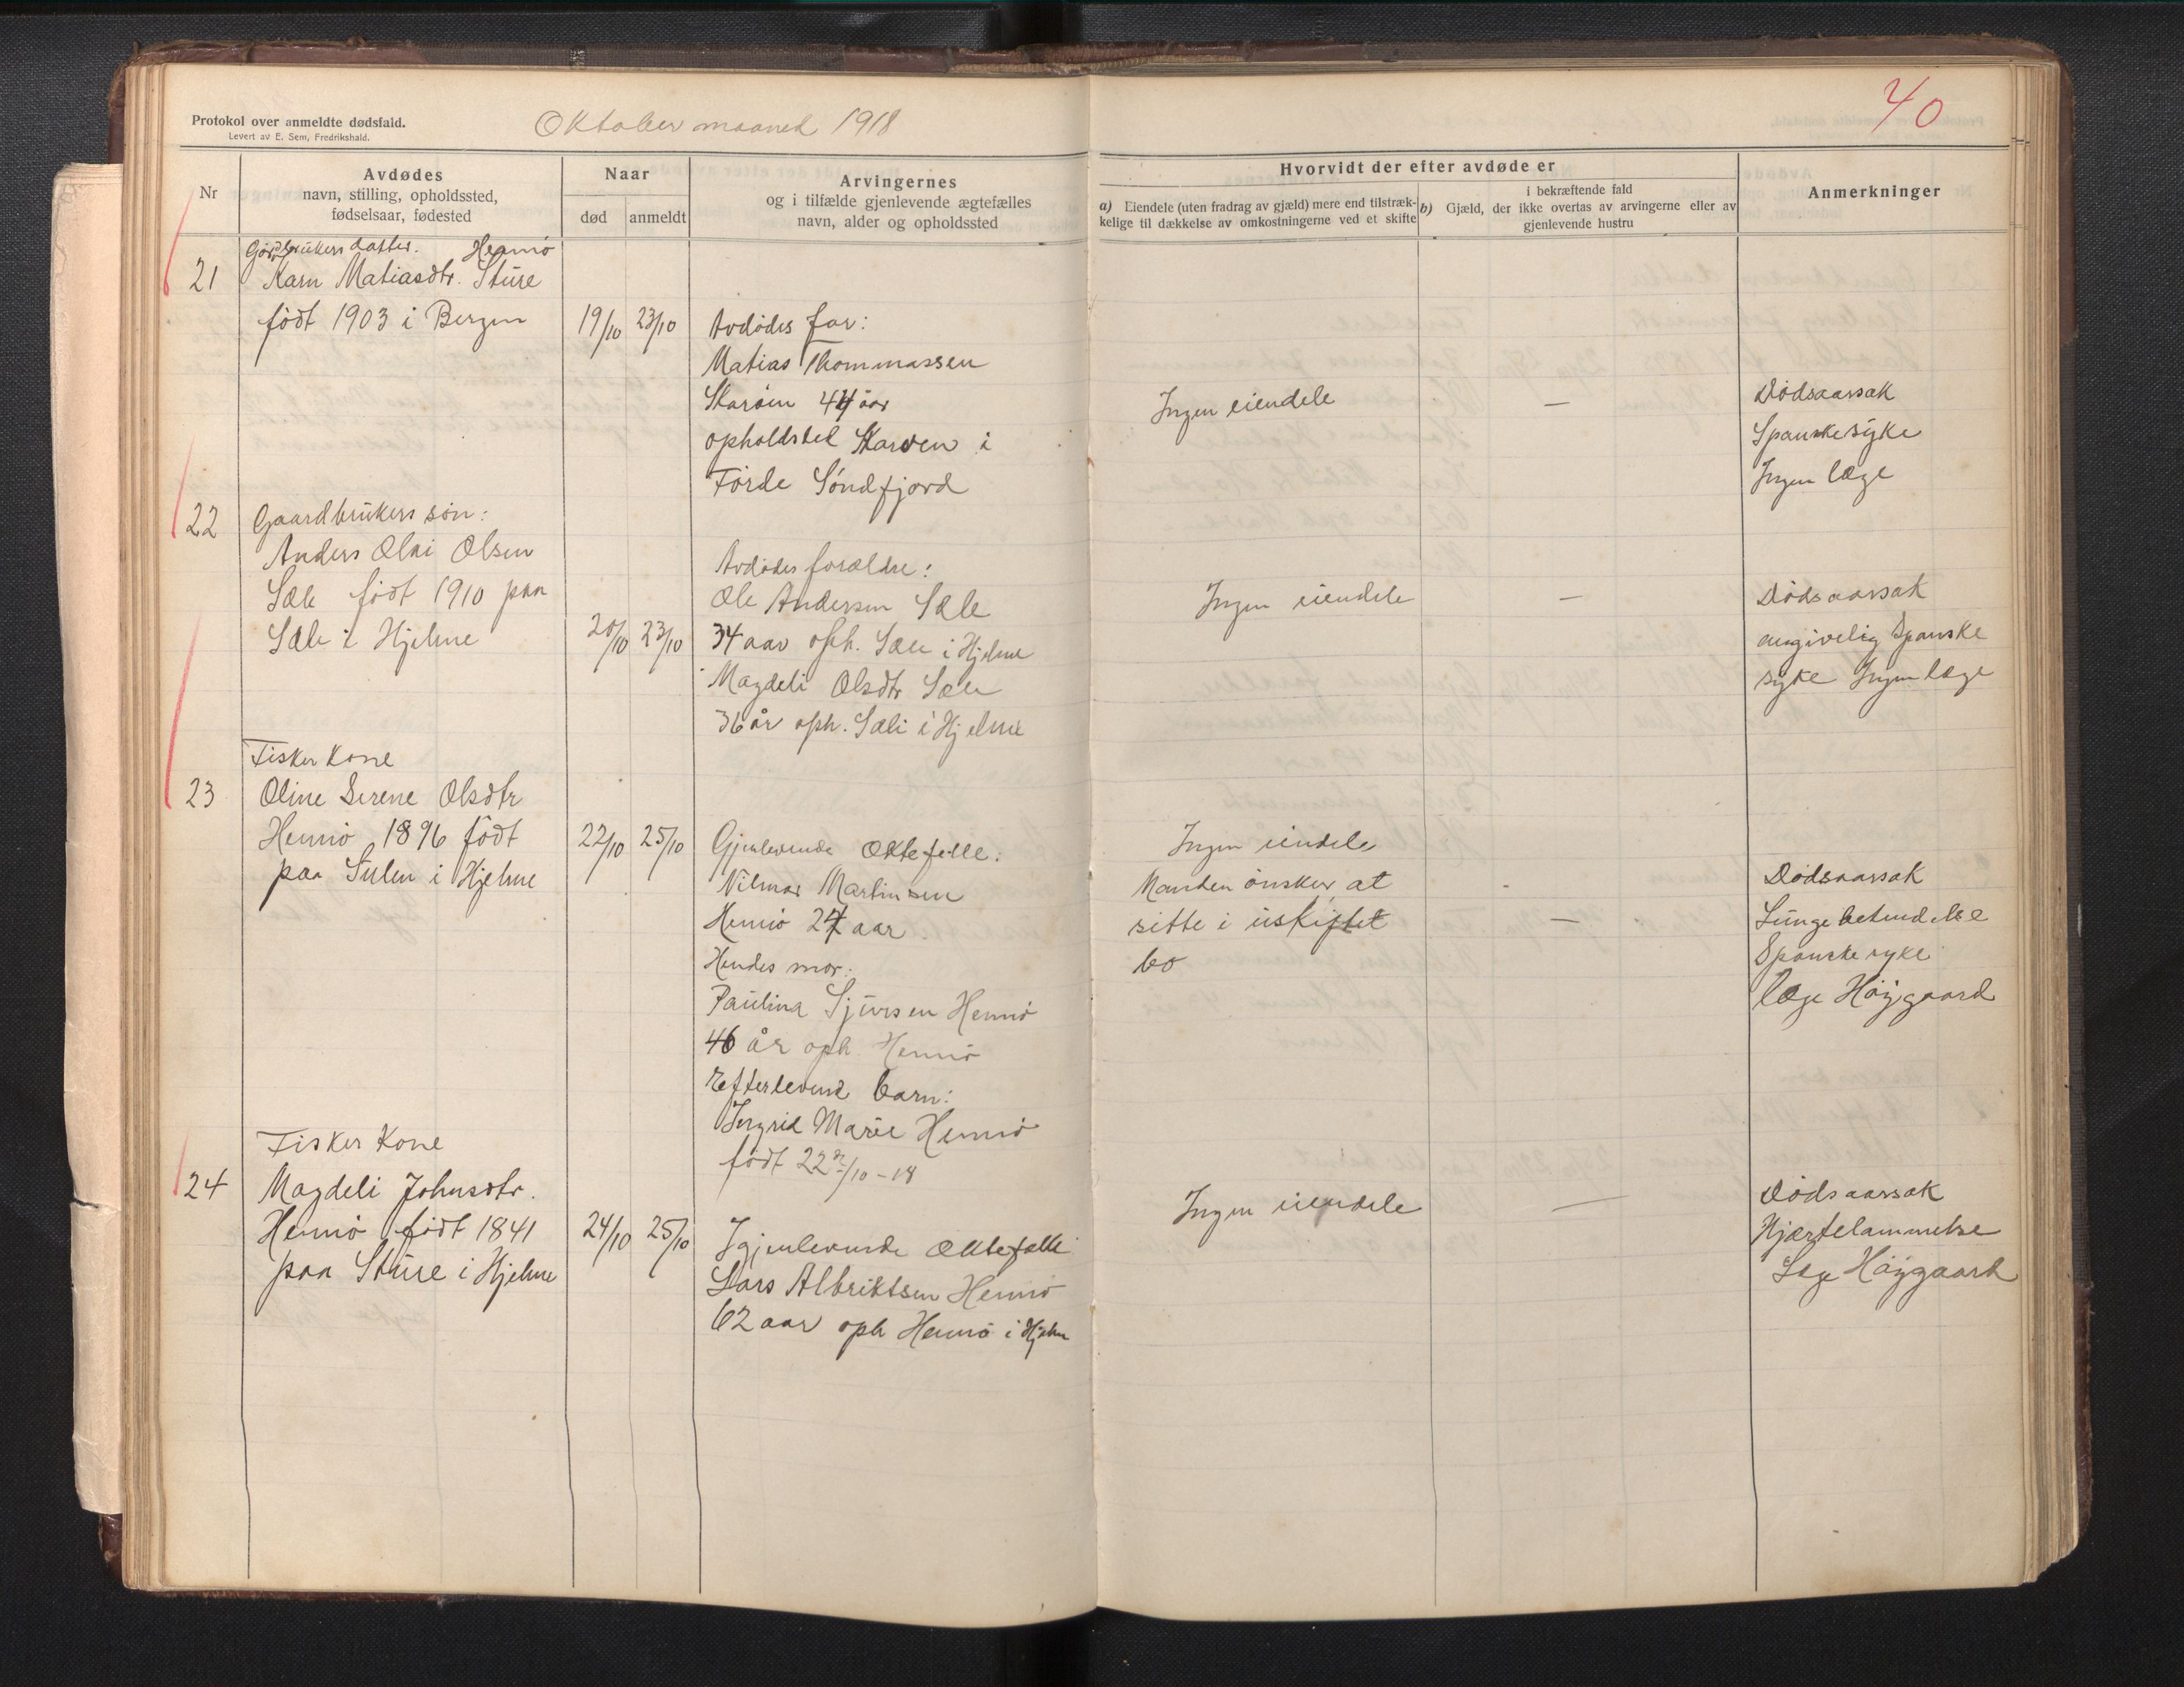 Protokol over anmeldte dødsfald.
Levert av E. Sem, Fredrikshald.
Oktober maaned 1918
40
Nr
Avdødes
navn, stilling, opholdssted,
fødselsaar, fødested
Naar
død
anmeldt
Arvingernes
og i tilfælde gjenlevende ægtefælles
navn, alder og opholdssted
Hvorvidt der efter avdøde er
a) Eiendele (uten fradrag av gjæld) mere end tilstræk-
kelige til dækkelse av omkostningerne ved et skifte
i bekræftende fald
b) Gjæld, der ikke overtas av arvingerne eller av
gjenlevende hustru
Anmerkninger
21
Gårdbrukers datter. Hennø
Karn Matiasdtr. Sture
født 1903 i Bergen
19/10
23/10
Avdødes far:
Matias Thommassen
Skarøen 44 aar
opholdsted Skarven i
Førde Søndfjord
Ingen eiendele
—
Dødsaarsak
Spanskesyke
Ingen læge
22
Gaardbrukers søn:
Anders Olai Olsen
Sæle født 1910 paa
Sæle i Hjelme
20/10
23/10
Avdødes forældre:
Ole Andersen Sæle
34 aar oph. Sæle i Hjelme
Magdeli Olsdtr Sæle
36 år oph. Sæle i Hjelme
Ingen eiendele
—
Dødsaarsak
angivelig Spanske
syke Ingen læge
23
Fisker Kone
Oline Serene Olsdtr
Hennø 1896 født
paa Sulen i Hjelme
22/10
25/10
Gjenlevende Ektefelle:
Nilmar Martinsen
Hennø 24 aar
Hendes mor:
Paulina Sjursen Hennø
46 år oph. Hennø
Efterlevend barn:
Ingrid Marie Hennø
født 22de/10-18
Ingen eiendele
Manden ønsker at
sitte i uskiftet
bo
—
Dødsaarsak
Lungebetendelse
Spanske syke
læge Høygaard
24
Fisker Kone
Magdeli Johnsdtr.
Hennø født 1841
paa Sture i Hjelme
24/10
25/10
Igjenlevende Ektefælle
Lars Albriktsen Hennø
62 aar oph Hennø i Hjelm
Ingen eiendele
—
Dødsaarsak
Hjærtelammelse
Læge Høygaard